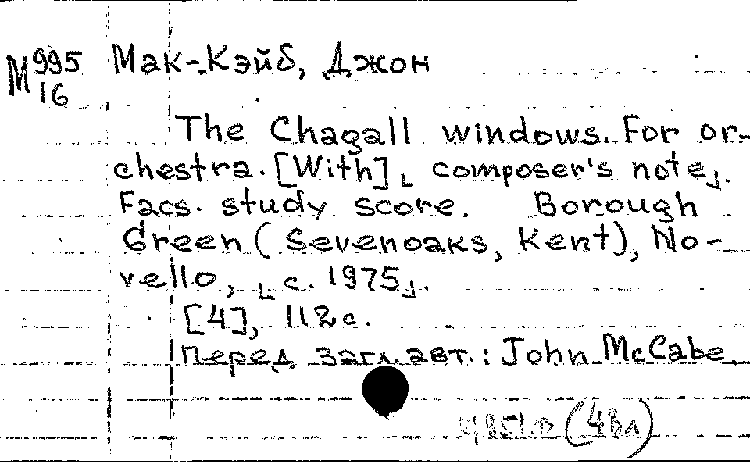 М995 Мак-Кэйб, Джон
16
The Chagall windows. For or-
chestra. [With] ⌊ composer's note⌋.
Facs. study score. Borough
Green (Sevenoaks, Kent), No-
vello, ⌊ c. 1975⌋.
[4], 112с.
Перед загл. авт.: John McCabe